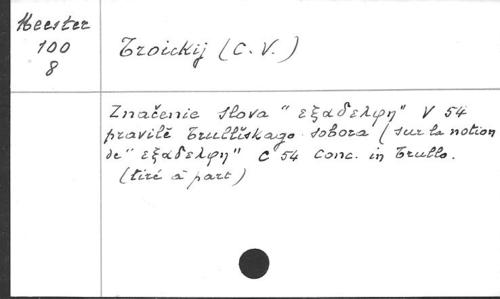 Meester
100
8
Troickij (C. V.)
Značenie slova "εξαδελφη" V 54
pravilě Trullškago sobora (sur la notion
de "εξαδελφη" C 54 conc. in Trullo.
(tiré à part)